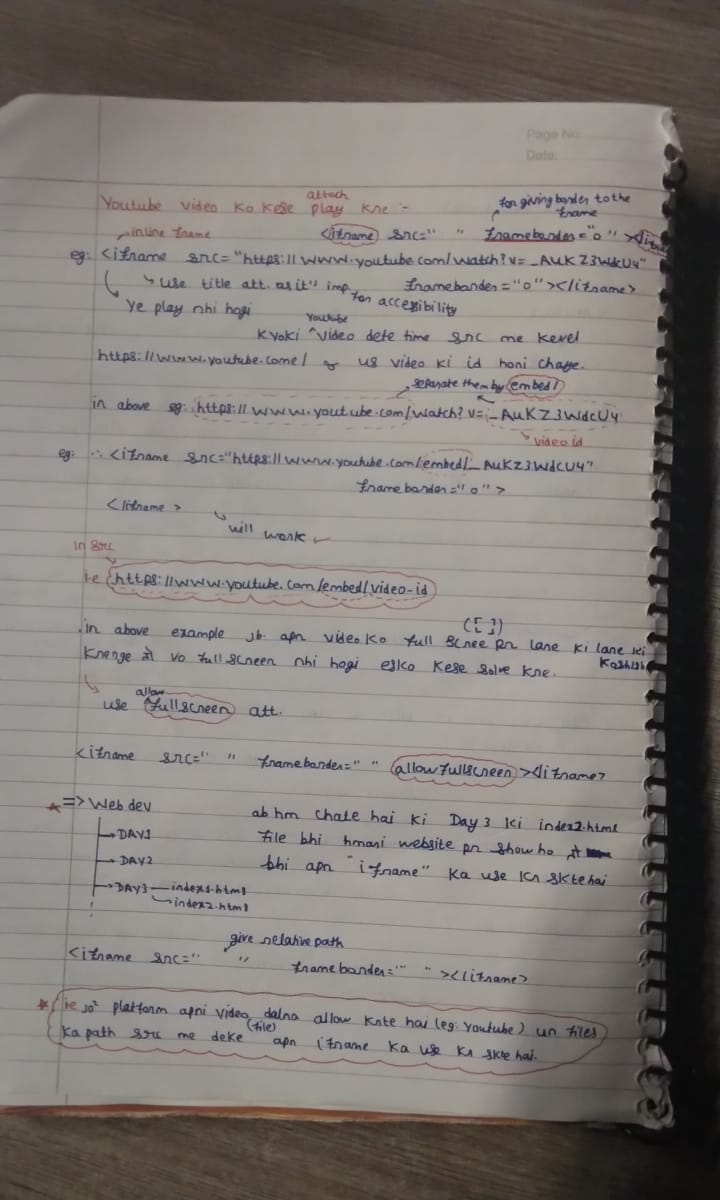 Page No.
Date:
attach
Youtube video ko kese play kre :-
for giving border to the frame
inline frame
<iframe> src=" " frameborder="0" ></iframe
eg: <iframe src="https://www.youtube.com/watch?v=_AUKZ3WdcU4"
use title att. as it's imp. for accessibility
frameborder="0"></iframe>
Ye play nhi hogi
Youtube
Kyoki ^video dete time src me kevel
https://www.youtube.come/ or us video ki id honi chaye.
separate them by embed/
in above eg: https://www.youtube.com/watch?v=_AUKZ3WdcU4
video id
eg: ∴ <iframe src="https://www.youtube.com/embed/_AUKZ3WdcU4"
frameborder="0">
</iframe>
will work ✓
In src
i.e https://www.youtube.com/embed/video-id
([ ])
in above example jb apn video ko full scree pr lane ki lane ki
Koshish
krenge to vo full screen nhi hogi esko kese solve kre.
allow
use ^fullscreen att.
<iframe src=" " frameborder=" " allowfullscreen></iframe>
* => Web dev
DAY1
DAY2
DAY3 index1.html
index2.html
ab hm chate hai ki Day 3 ki index2.html
file bhi hmari website pr show ho
bhi apn "iframe" ka use kr skte hai
give relative path
<iframe src=" " frameborder=" "></iframe>
* ie jo² platform apni video dalna allow krte hai (eg: youtube) un files
(file)
ka path src me deke apn iframe ka use kr skte hai.